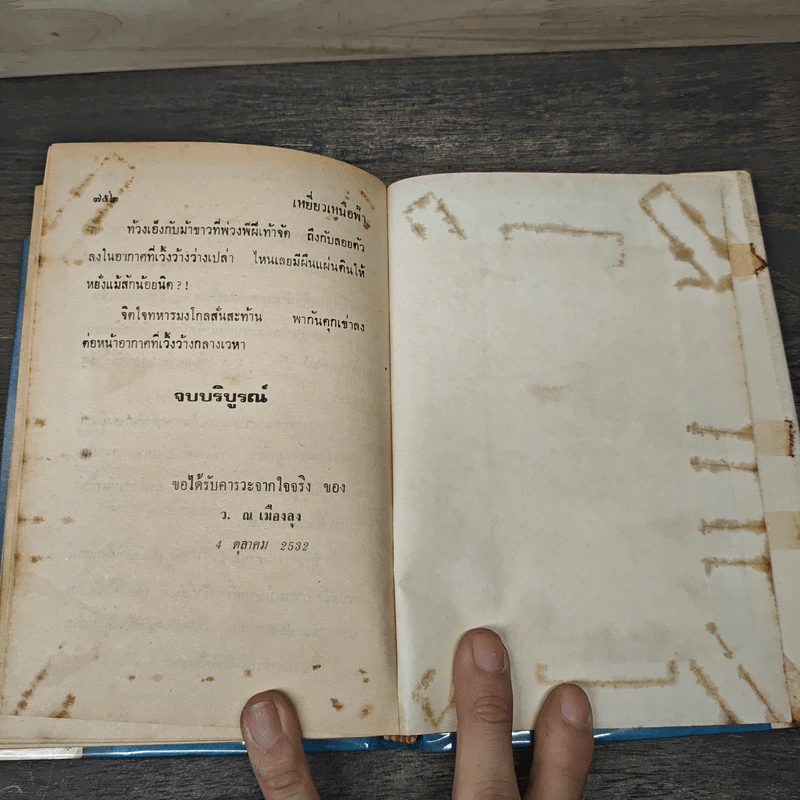 ๗๕๒
เหยี่ยวเหนือฟ้า
ท้วงเอ็งกับม้าขาวที่พ่วงพีฝีเท้าจัด ถึงกับลอยตัว
ลงในอากาศที่เวิ้งว้างว่างเปล่า ไหนเลยมีผืนแผ่นดินให้
หยั่งแม้สักน้อยนิด ? !
จิตใจทหารมงโกลสั่นสะท้าน พากันคุกเข่าลง
ต่อหน้าอากาศที่เวิ้งว้างกลางเวหา
จบบริบูรณ์
ขอได้รับคารวะจากใจจริง ของ
ว. ณ เมืองลุง
4 ตุลาคม 2532